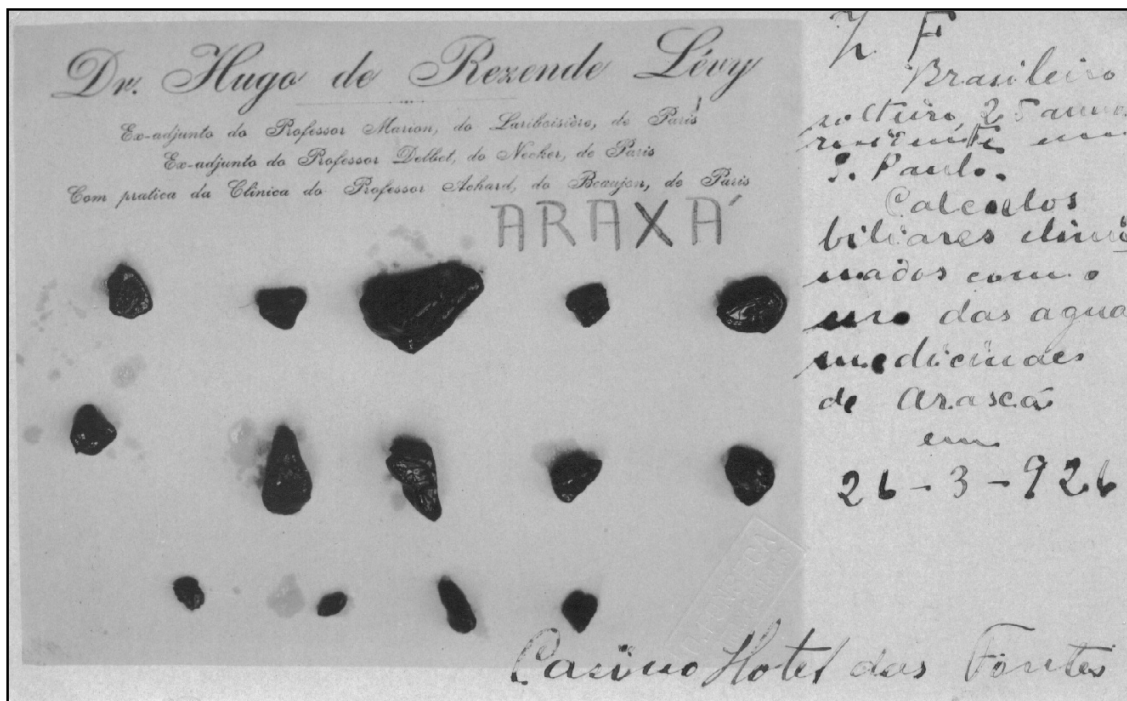 Dr. Hugo de Rezende Lévy
Ex-adjunto do Professor Marion, do Lariboisière, de Paris
Ex-adjunto do Professor Delbet, do Necker, de Paris
Com pratica da Clinica do Professor Achard, do Beaujon, de Paris
ARAXÁ
F
Brasileiro
solteiro, 25 annos
residente em
S. Paulo.
Calculos
biliares elimi
nados com o
uso das agua
medicinaes
de Araxá
em
26-3-926
Casino Hotel das Fontes